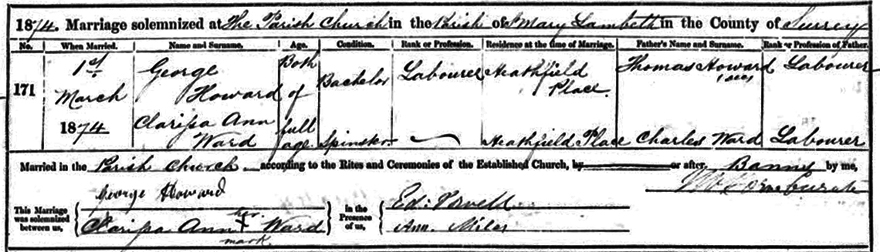 1874 Marriage solemnized at The Parish Church in the Parish of St Mary Lambeth in the County of Surrey
No. When Married. Name and Surname. Age. Condition. Rank or Profession. Residence at the time of Marriage. Father's Name and Surname. Rank or Profession of Father.
171 1st March 1874 George Howard Both of full age Bachelor Labourer Heathfield Place Thomas Howard Labourer
Clarissa Ann Ward Spinster — Heathfield Place Charles Ward Labourer
Married in the Parish Church according to the Rites and Ceremonies of the Established Church, by or after Banns by me,
George Howard
This Marriage was solemnized between us, Clarissa Ann her X mark Ward In the Presence of us, Ed: Powell
Ann Miles